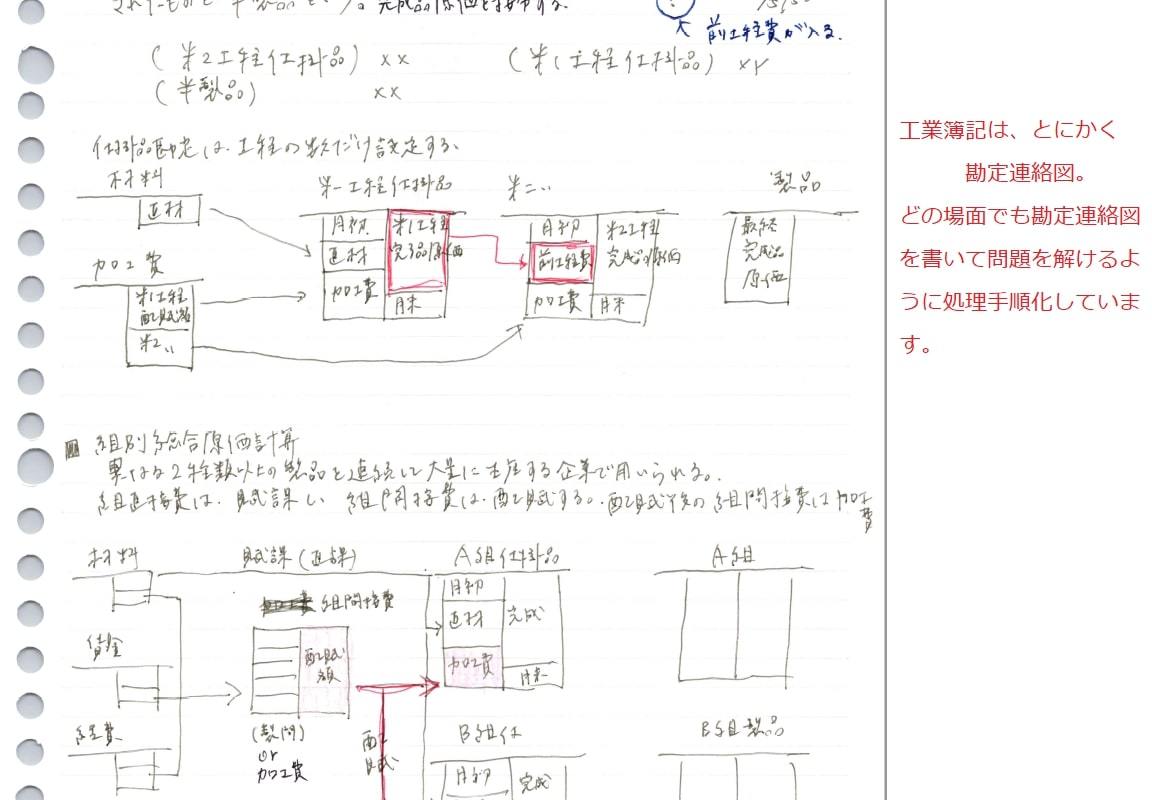 されたものを半製品という。完成品原価を接する。
前工程費が入る。
(第2工程仕掛品) xx (第1工程仕掛品) xx
(半製品) xx
仕掛品勘定は、工程の数だけ設定する。
材料
直材
加工費
第1工程
配賦額
第2〃
第一工程仕掛品
月初
直材
加工費
第1工程
完了品原価
月末
第二〃
月初
前工程費
加工費
第2工程
完成品原価
月末
製品
最終
完成品
原価
工業簿記は、とにかく
勘定連絡図。
どの場面でも勘定連絡図
を書いて問題を解けるよ
うに処理手順化していま
す。
組別総合原価計算
異なる2種類以上の製品を連続して大量に生産する企業で用いられる。
組直接費は、賦課し、組間接費は、配賦する。配賦後の組間接費は加工
費
材料
賃金
経費
賦課(直課)
組間接費
配賦
額
(製間)
or
加工費
配
賦
A組仕掛品
月初
直材
加工費
完成
月末
B組仕
月初
完成
A組
B組製品